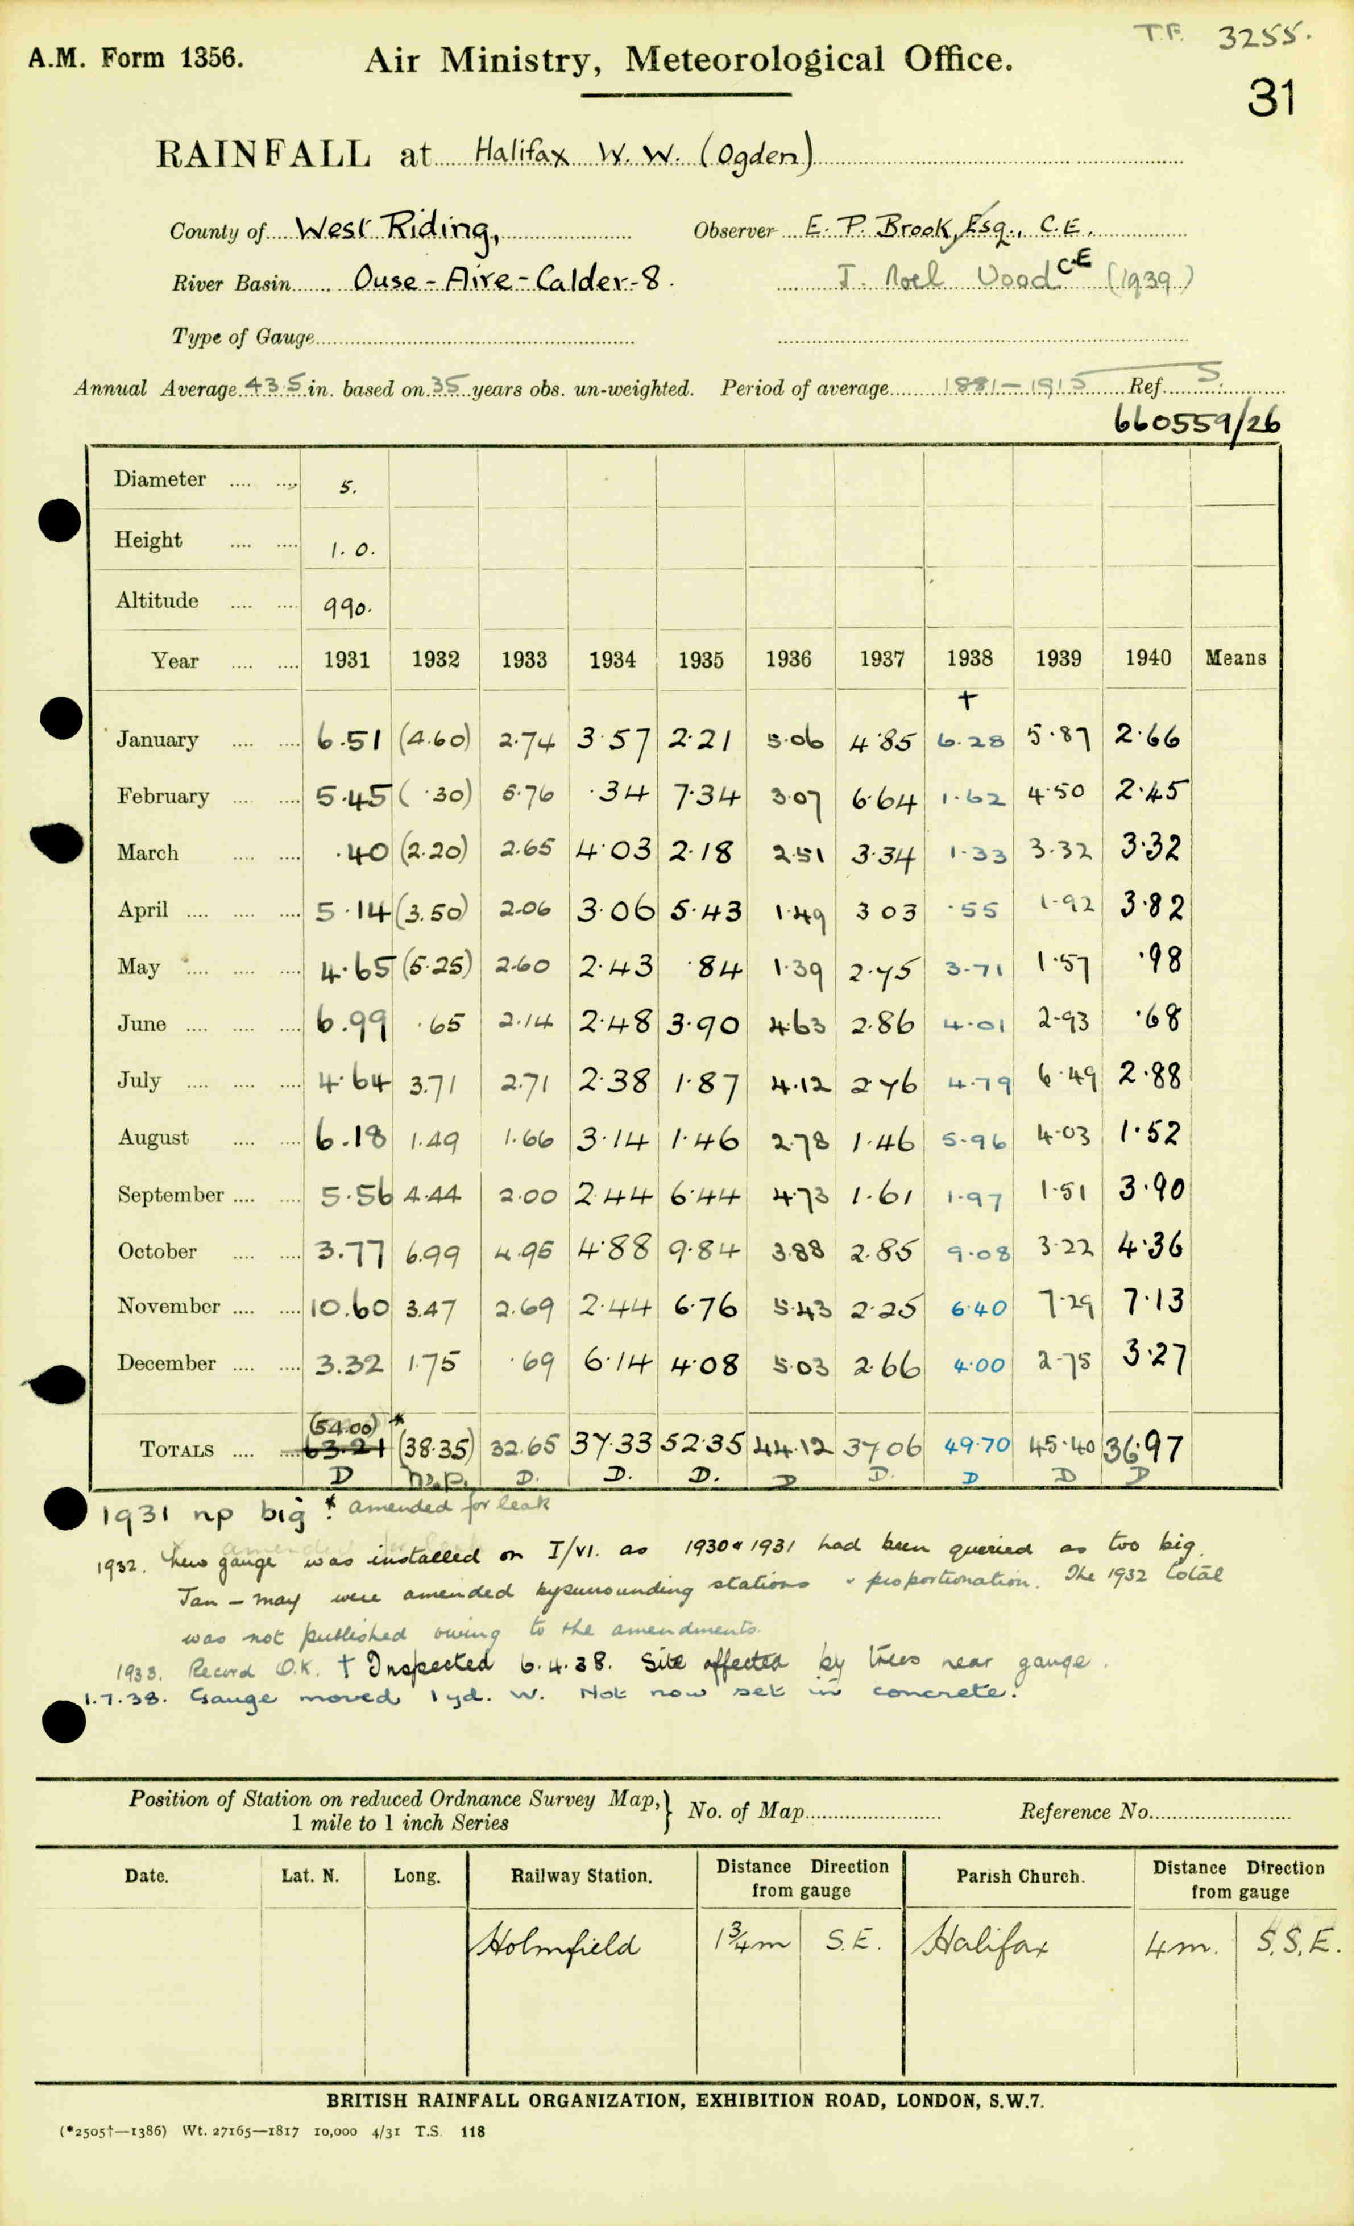 T.F. 3255.
A.M. Form 1356. Air Ministry, Meteorological Office.
31
RAINFALL at Halifax W. W. (Ogden)
County of West Riding, Observer E. P. Brook, Esq., C.E.
River Basin Ouse-Aire-Calder-8. J. Noel Wood C.E (1939)
Type of Gauge
Annual Average 43.5 in. based on 35 years obs. un-weighted. Period of average 1881-1915 Ref. S.
660559/26
Diameter 5.
Height 1. 0.
Altitude 990.
Year 1931 1932 1933 1934 1935 1936 1937 1938 1939 1940 Means
†
January 6.51 (4.60) 2.74 3.57 2.21 5.06 4.85 6.28 5.87 2.66
February 5.45 (.30) 5.76 .34 7.34 3.07 6.64 1.62 4.50 2.45
March .40 (2.20) 2.65 4.03 2.18 2.51 3.34 1.33 3.32 3.32
April 5.14 (3.50) 2.06 3.06 5.43 1.49 3.03 .55 1.92 3.82
May 4.65 (5.25) 2.60 2.43 .84 1.39 2.75 3.71 1.57 .98
June 6.99 .65 2.14 2.48 3.90 4.63 2.86 4.01 2.93 .68
July 4.64 3.71 2.71 2.38 1.87 4.12 2.76 4.79 6.49 2.88
August 6.18 1.49 1.66 3.14 1.46 2.78 1.46 5.96 4.03 1.52
September 5.56 4.44 2.00 2.44 6.44 4.73 1.61 1.97 1.51 3.90
October 3.77 6.99 4.95 4.88 9.84 3.88 2.85 9.08 3.22 4.36
November 10.60 3.47 2.69 2.44 6.76 5.43 2.25 6.40 7.29 7.13
December 3.32 1.75 .69 6.14 4.08 5.03 2.66 4.00 2.75 3.27
(54.00) *
TOTALS 63.21 (38.35) 32.65 37.33 52.35 44.12 37.06 49.70 45.40 36.97
D n.p. D. D. D. D D. D D D
1931 np big * amended for leak
1932. New gauge was installed on I/VI. as 1930 & 1931 had been queried as too big.
Jan - May were amended by surrounding stations & proportionation. The 1932 total
was not published owing to the amendments.
1933. Record O.K. † Inspected 6.4.38. Site affected by trees near gauge.
1.7.38. Gauge moved 1 yd. W. Not now set in concrete.
Position of Station on reduced Ordnance Survey Map, } No. of Map Reference No.
1 mile to 1 inch Series
Date. Lat. N. Long. Railway Station. Distance Direction from gauge Parish Church. Distance Direction from gauge
Holmfield 1¾m S.E. Halifax 4m. S.S.E.
BRITISH RAINFALL ORGANIZATION, EXHIBITION ROAD, LONDON, S.W.7.
(*2505†—1386) Wt. 27165—1817 10,000 4/31 T.S. 118